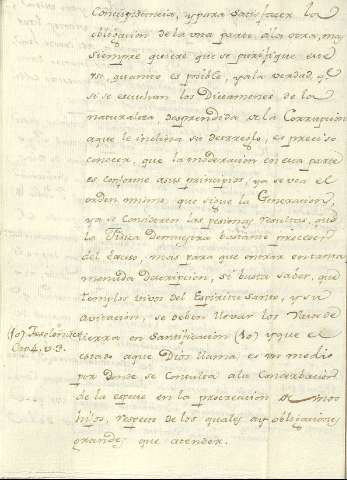 Concupiscencia, y para satisfacer la
obligacion de la una parte á la otra, mas
siempre quiere que se purifique en es
to, quanto es posible, y a la verdad q.
si se escuchan los Dictamenes de la
naturaleza, desprendida de la Corrupcion
a que le inclina su desarreglo, es preciso
conocer, que la moderacion en esta parte
es conforme a sus principios, ya se vea el
orden mismo, que sigue la Generacion,
ya se consideren las pesimas resultas, que
la Fisica Demuestra bastante proceder
del Exceso, mas para que entrar en tanta
menuda Descripcion, si basta saber, que
templos vivos del Espiritu Santo, y su
avitacion, se deben llevar los Vasos de
tierra en Santificacion (10) y que el
(10)
Cap. 4. v. 3.
estado a que Dios llama es un medio
por donde se Consulta a la Conserbacion
de la especie en la procreacion de unos
hijos, respeto de los quales ay obligaciones
grandes que atender.